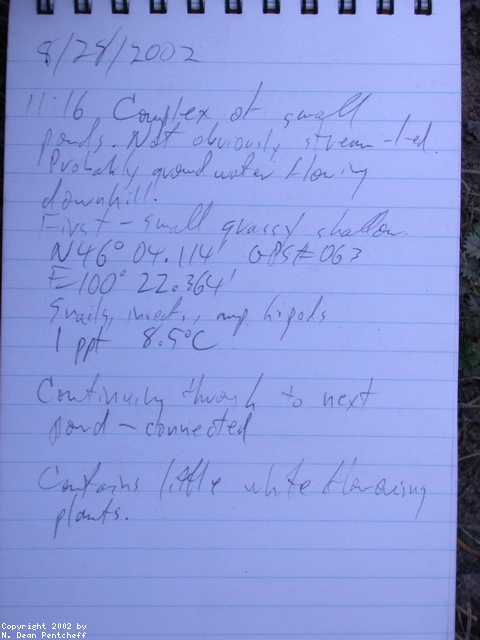 8/28/2002
11:16 Complex of small
ponds. Not obviously stream-fed.
Probably groundwater flowing
downhill.
First - small grassy shallow.
N46° 04.114' GPS# 063
E100° 22.364'
Snails, insects, amphipods
1 ppt 8.5°C
Continuing through to next
pond - connected
Contains little white flowering
plants.
Copyright 2002 by
N. Dean Pentcheff